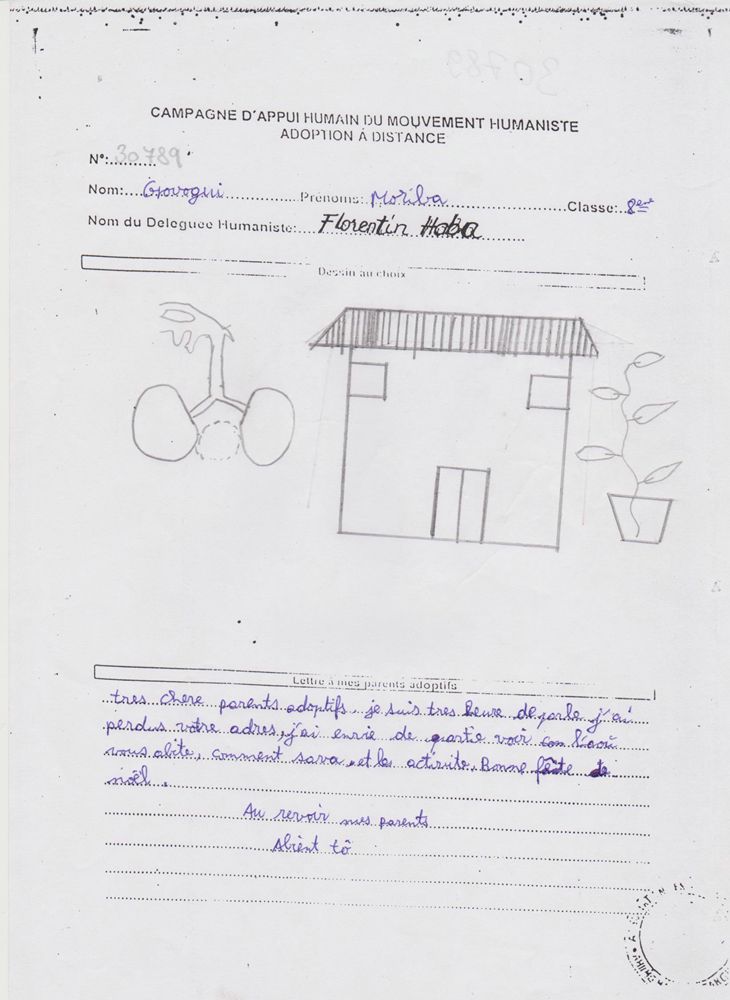 CAMPAGNE D'APPUI HUMAIN DU MOUVEMENT HUMANISTE
ADOPTION À DISTANCE
N°: 30789
Nom: Govogui Prénoms: Moriba Classe: 8em
Nom du Deleguee Humaniste: Florentin Haba
Dessin au choix
Lettre à mes parents adoptifs
tres chere parents adoptifs. je suis tres heure de parle j'ai
perdus votre adres, j'ai envie de partie voir l'aoù
vous abite, comment sava, et les activite. Bonne fête de
noël.
Au revoir mes parents
Abient tô